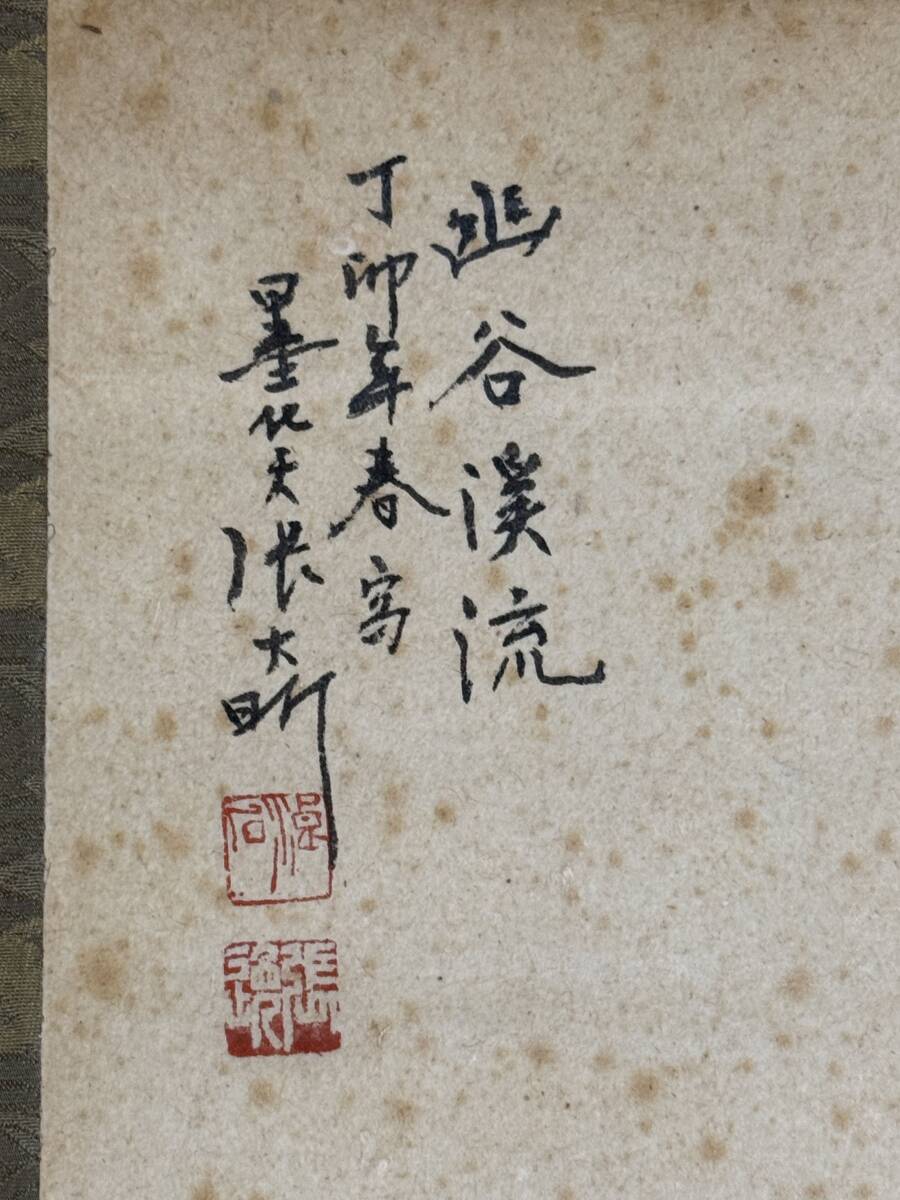 幽谷溪流
丁卯年春寫
墨化天張大昕